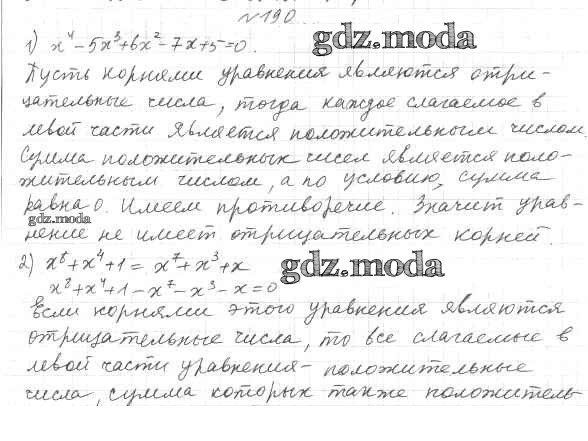 №190
1) x⁴ - 5x³ + 6x² - 7x + 5 = 0. gdz.moda
Пусть корнями уравнения являются отри-
цательные числа, тогда каждое слагаемое в
левой части является положительным числом.
Сумма положительных чисел является поло-
жительным числом, а по условию, сумма
равна 0. Имеем противоречие. Значит урав-
gdz.moda
нение не имеет отрицательных корней.
2) x⁸ + x⁴ + 1 = x⁷ + x³ + x gdz.moda
x⁸ + x⁴ + 1 - x⁷ - x³ - x = 0
Если корнями этого уравнения являются
отрицательные числа, то все слагаемые в
левой части уравнения - положительные
числа, сумма которых также положитель